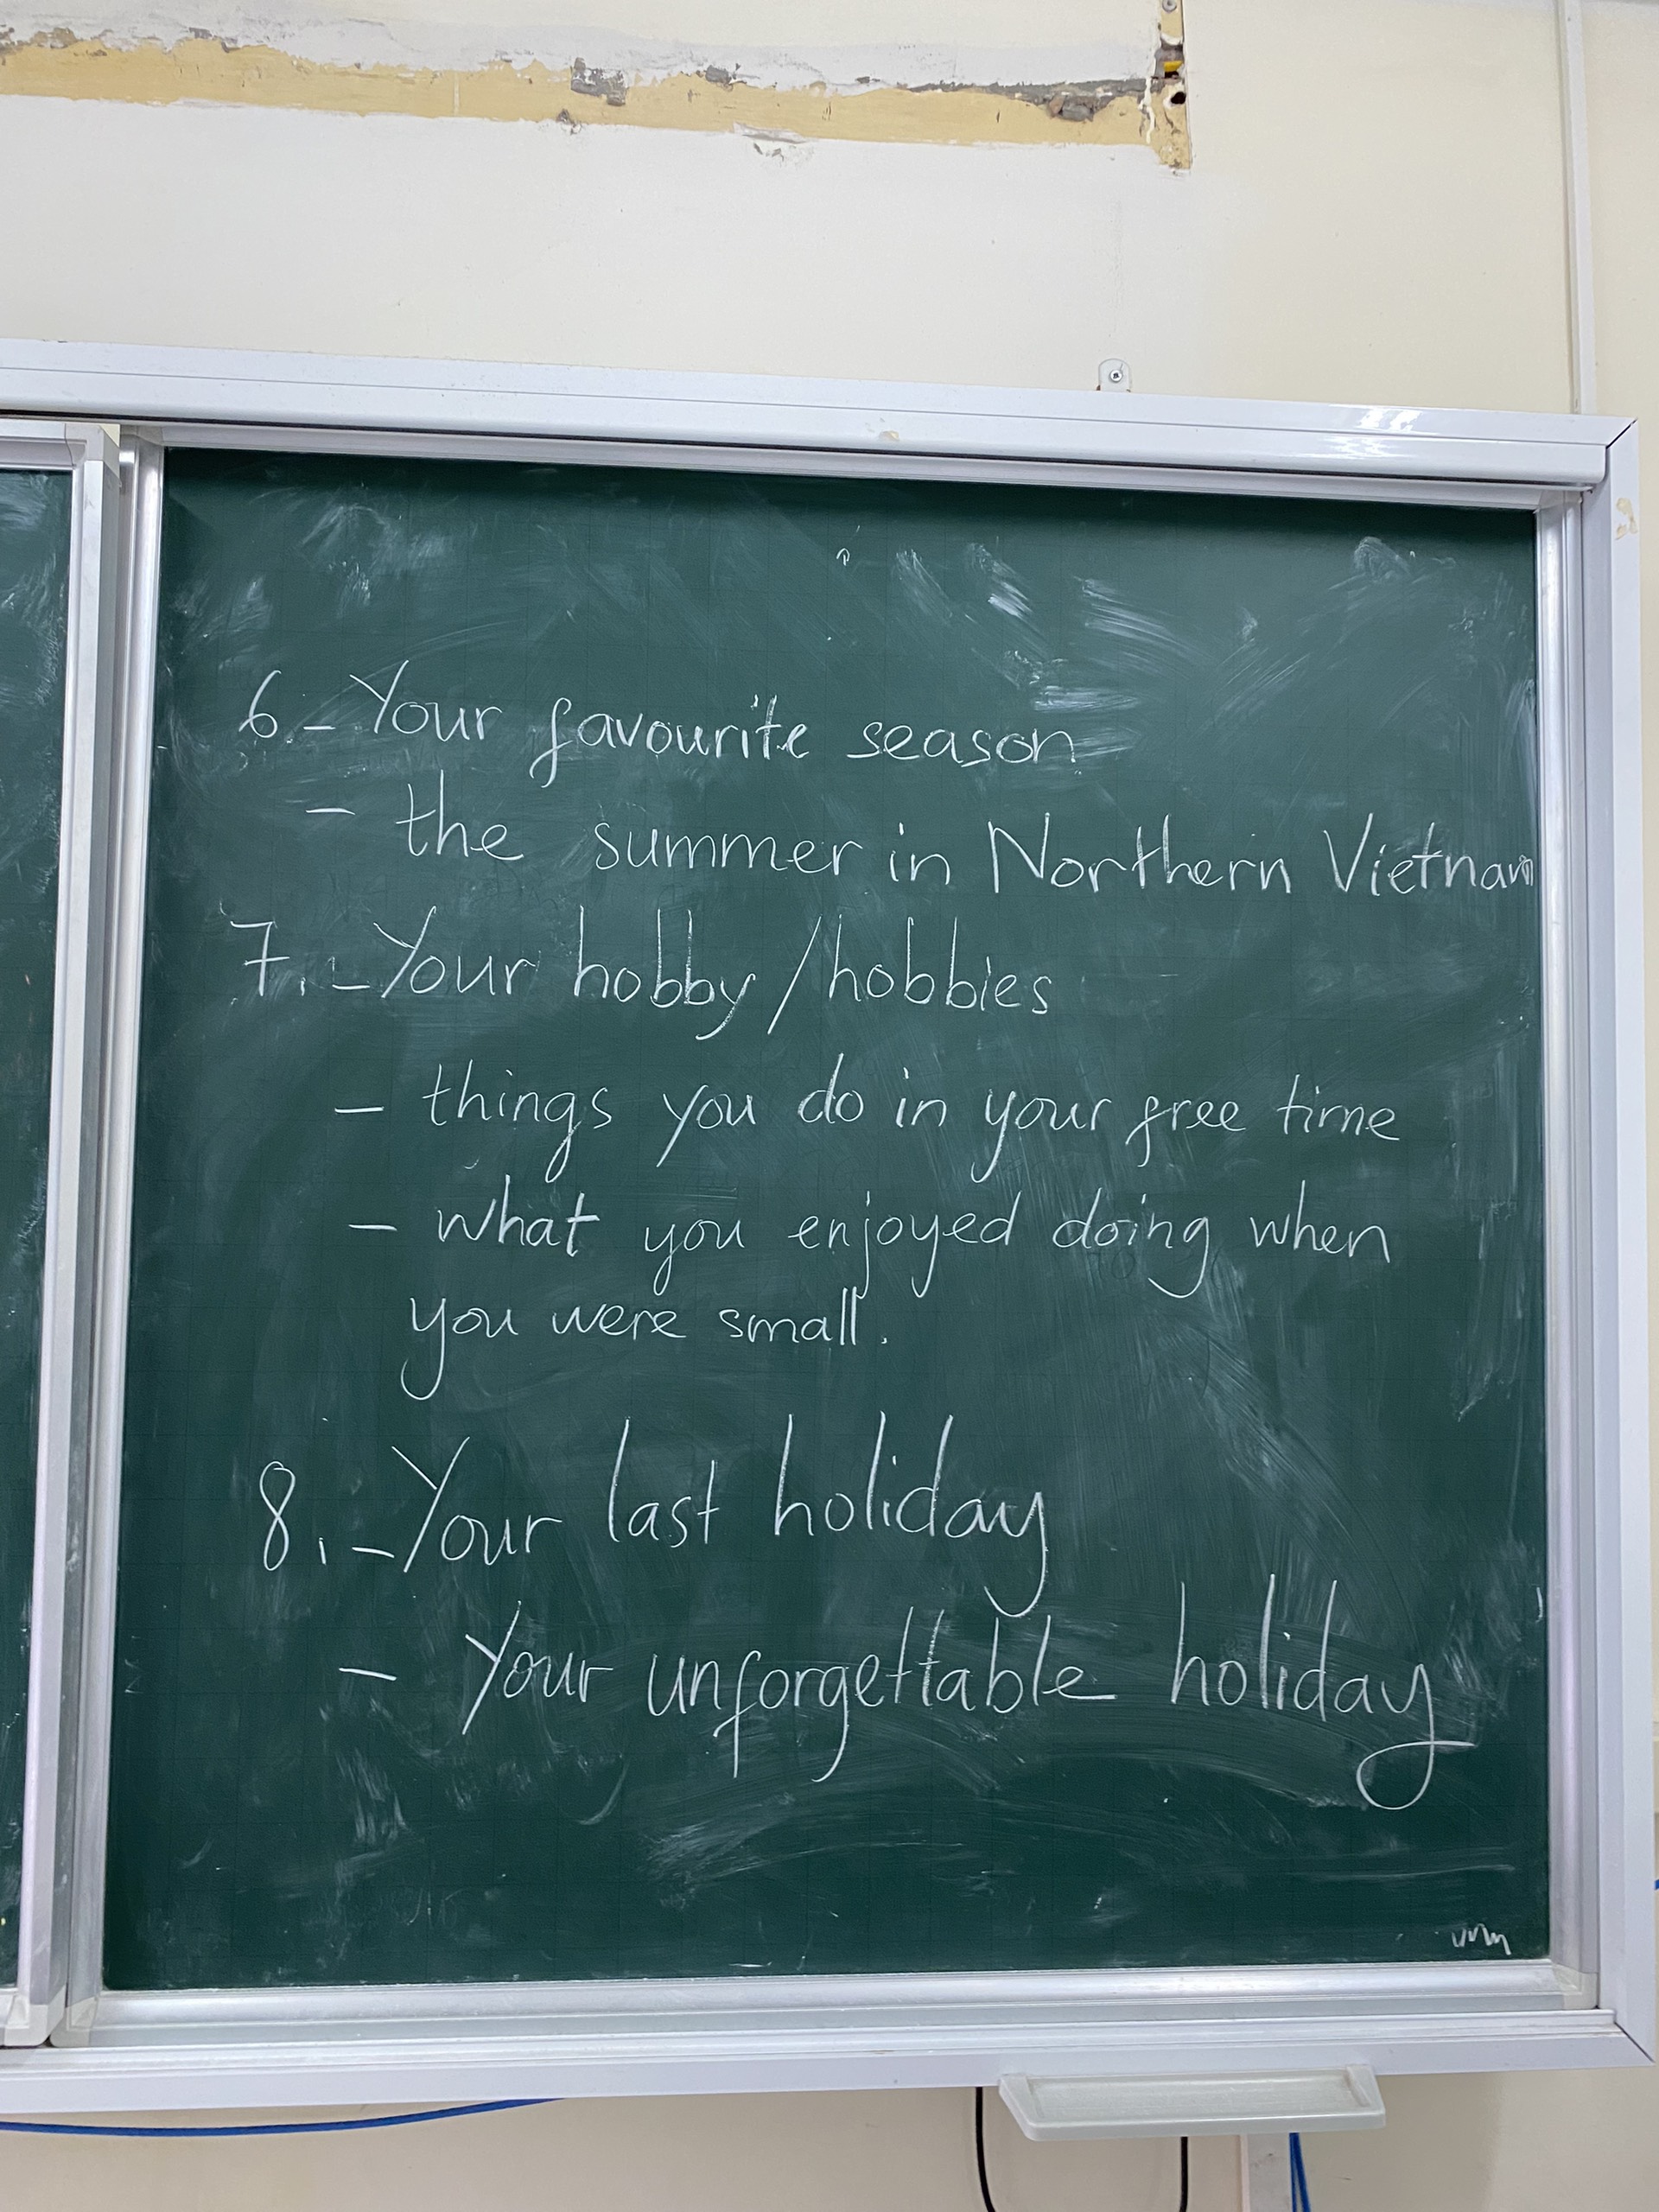 6.- Your favourite season
- the summer in Northern Vietnam
7. - Your hobby / hobbies
- things you do in your free time
- what you enjoyed doing when
you were small.
8. - Your last holiday
- Your unforgettable holiday